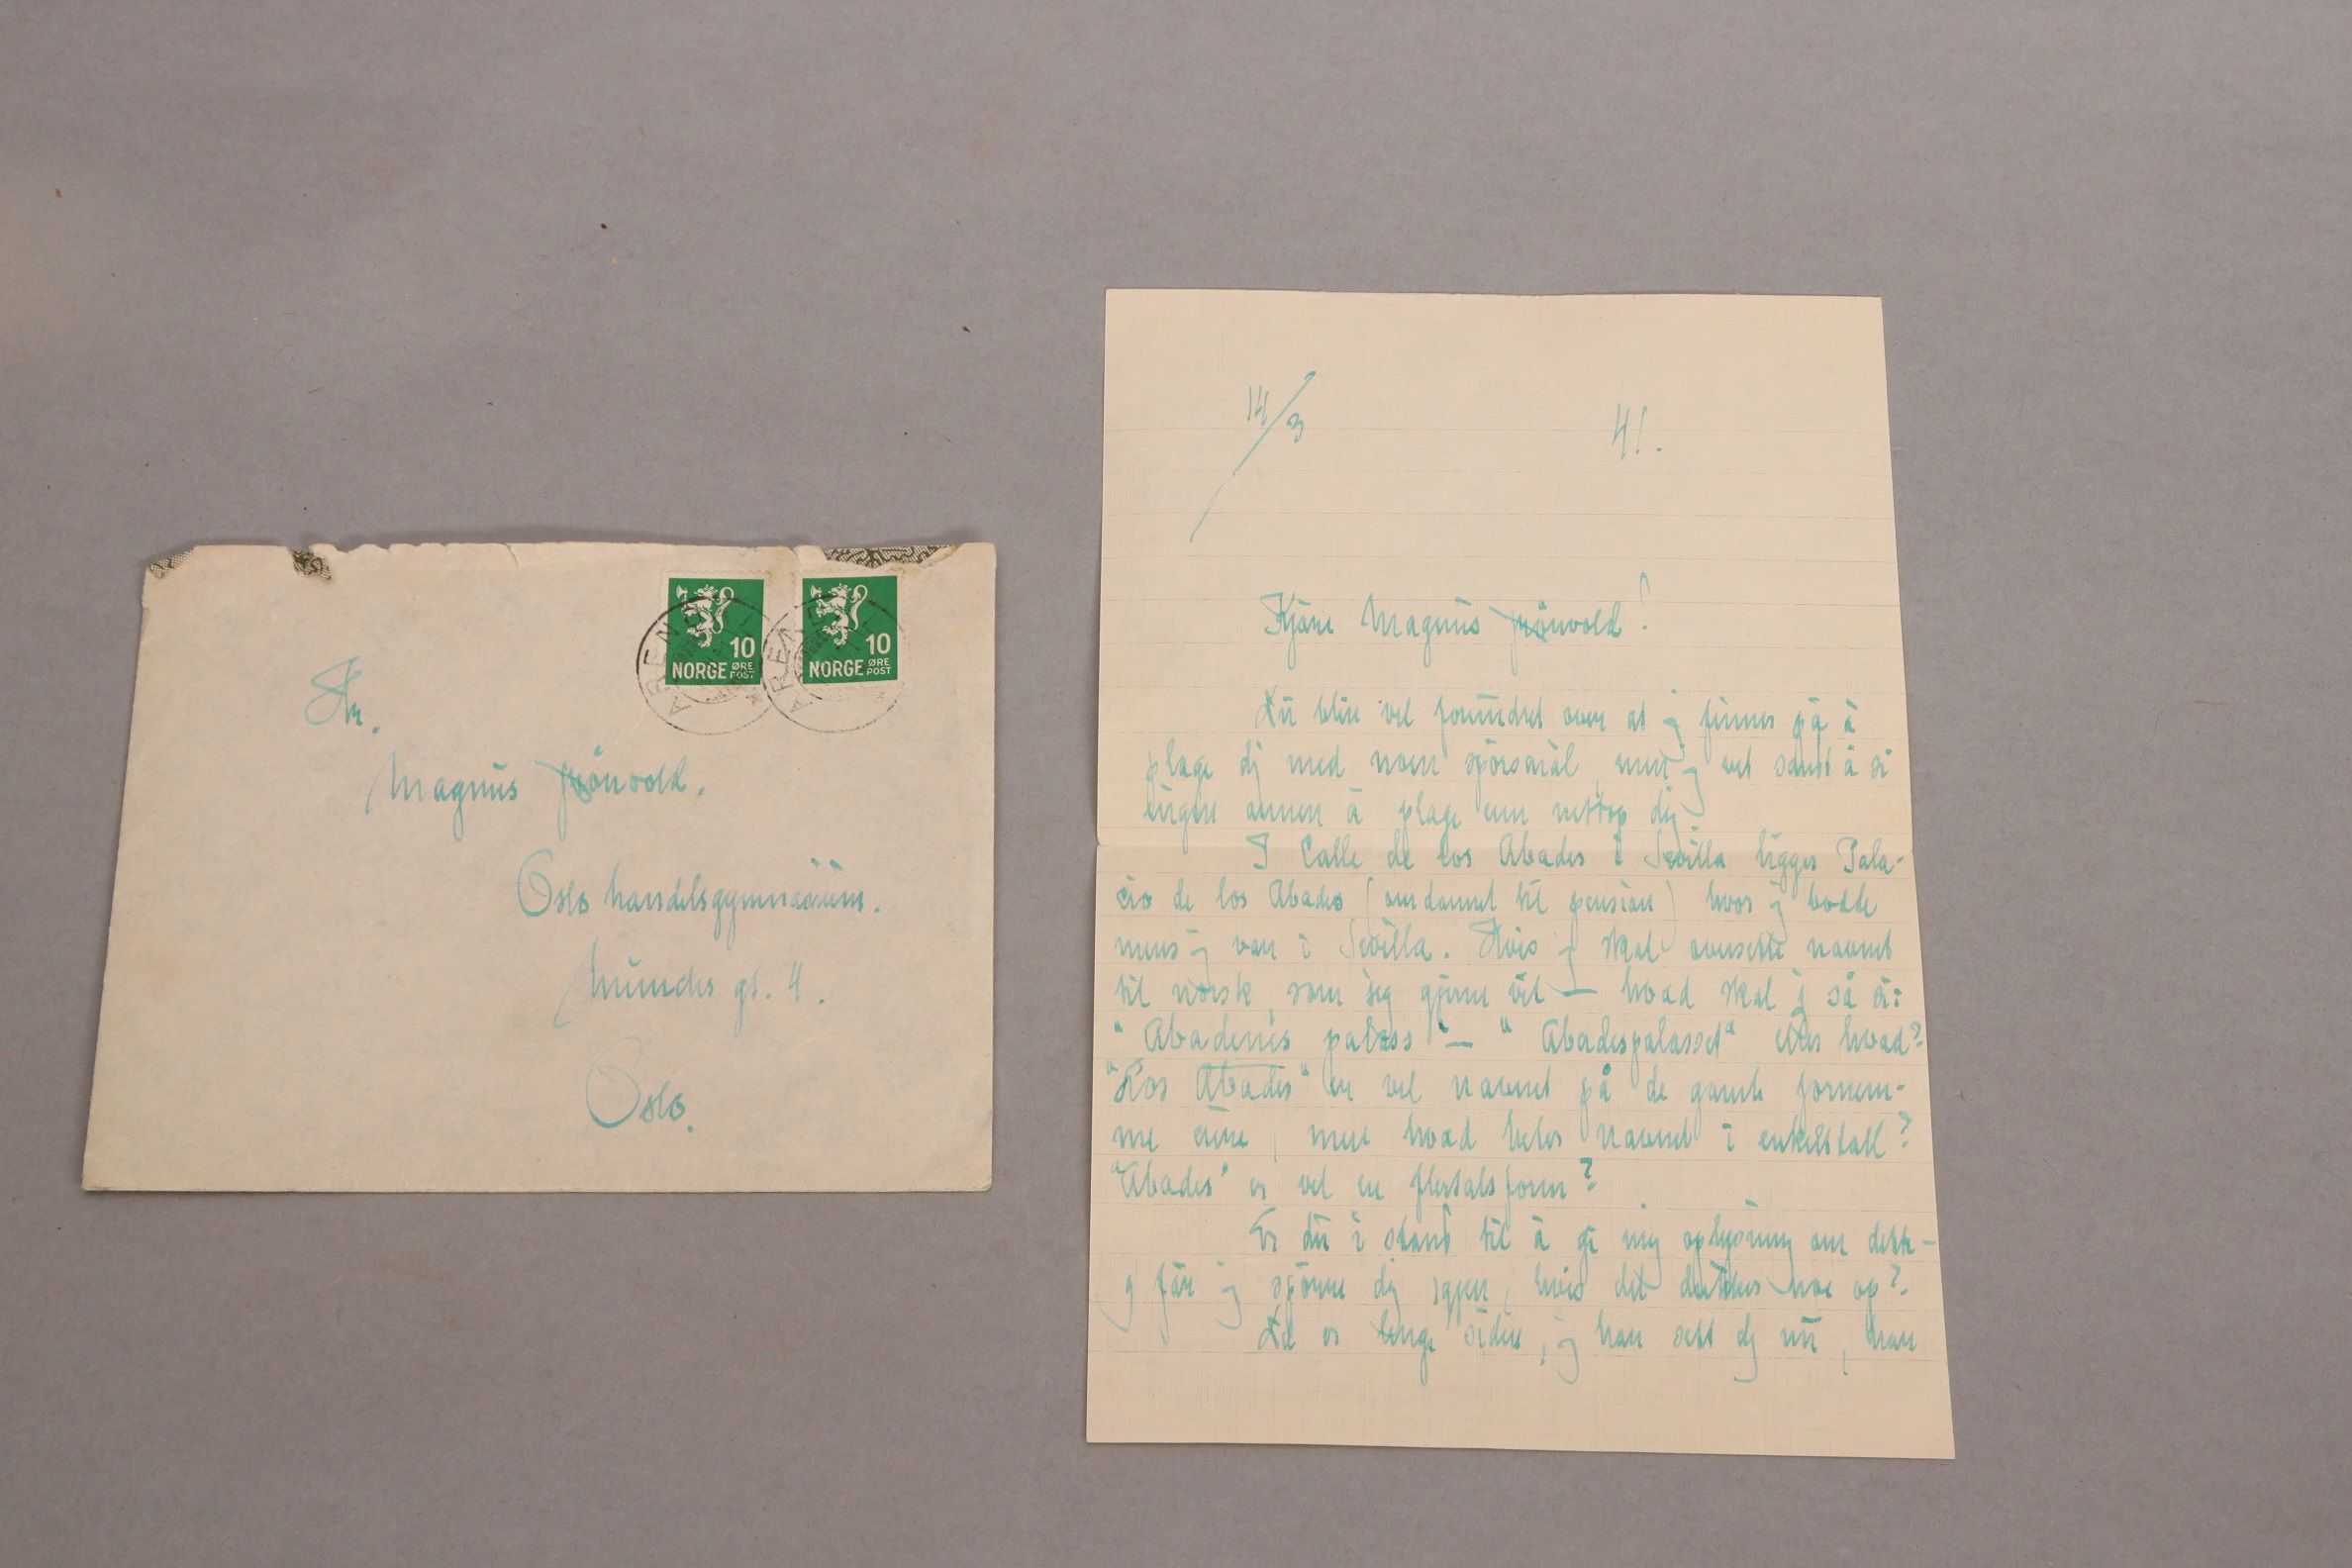 ARENDAL
10
NORGE ØRE
POST
ARENDAL
10
NORGE ØRE
POST
Hr.
Magnus Grönvold.
Oslo handelsgymnasium.
Munches gt. 4.
Oslo.
14/3 41.
Kjäre Magnus Grönvold!
Du blir vel forundret over at j finner på å
plage dj med noen spörsmål, men j vet sant å si
ingen annen å plage enn nettop dig.
I Calle de los Abades i Sevilla ligger Pala-
cio de los Abades (omdannet til pension) hvor j bodde
mens j var i Sevilla. Hvis j skal oversette navnet
til norsk, som jeg gjerne vil — hvad skal j så si:
"Abadenes palass" — "Abadespalasset" eller hvad?
"Los Abades" er vel navnet på de gamle fornem-
me eiere, men hvad heter navnet i enkelttall?
"Abades" er vel en flertalsform?
Er du i stand til å gi mig oplysning om dette —
g får j spörre dig igjen, hvis det dukker noe op?
Det er lenge siden, j har sett dj nu, han